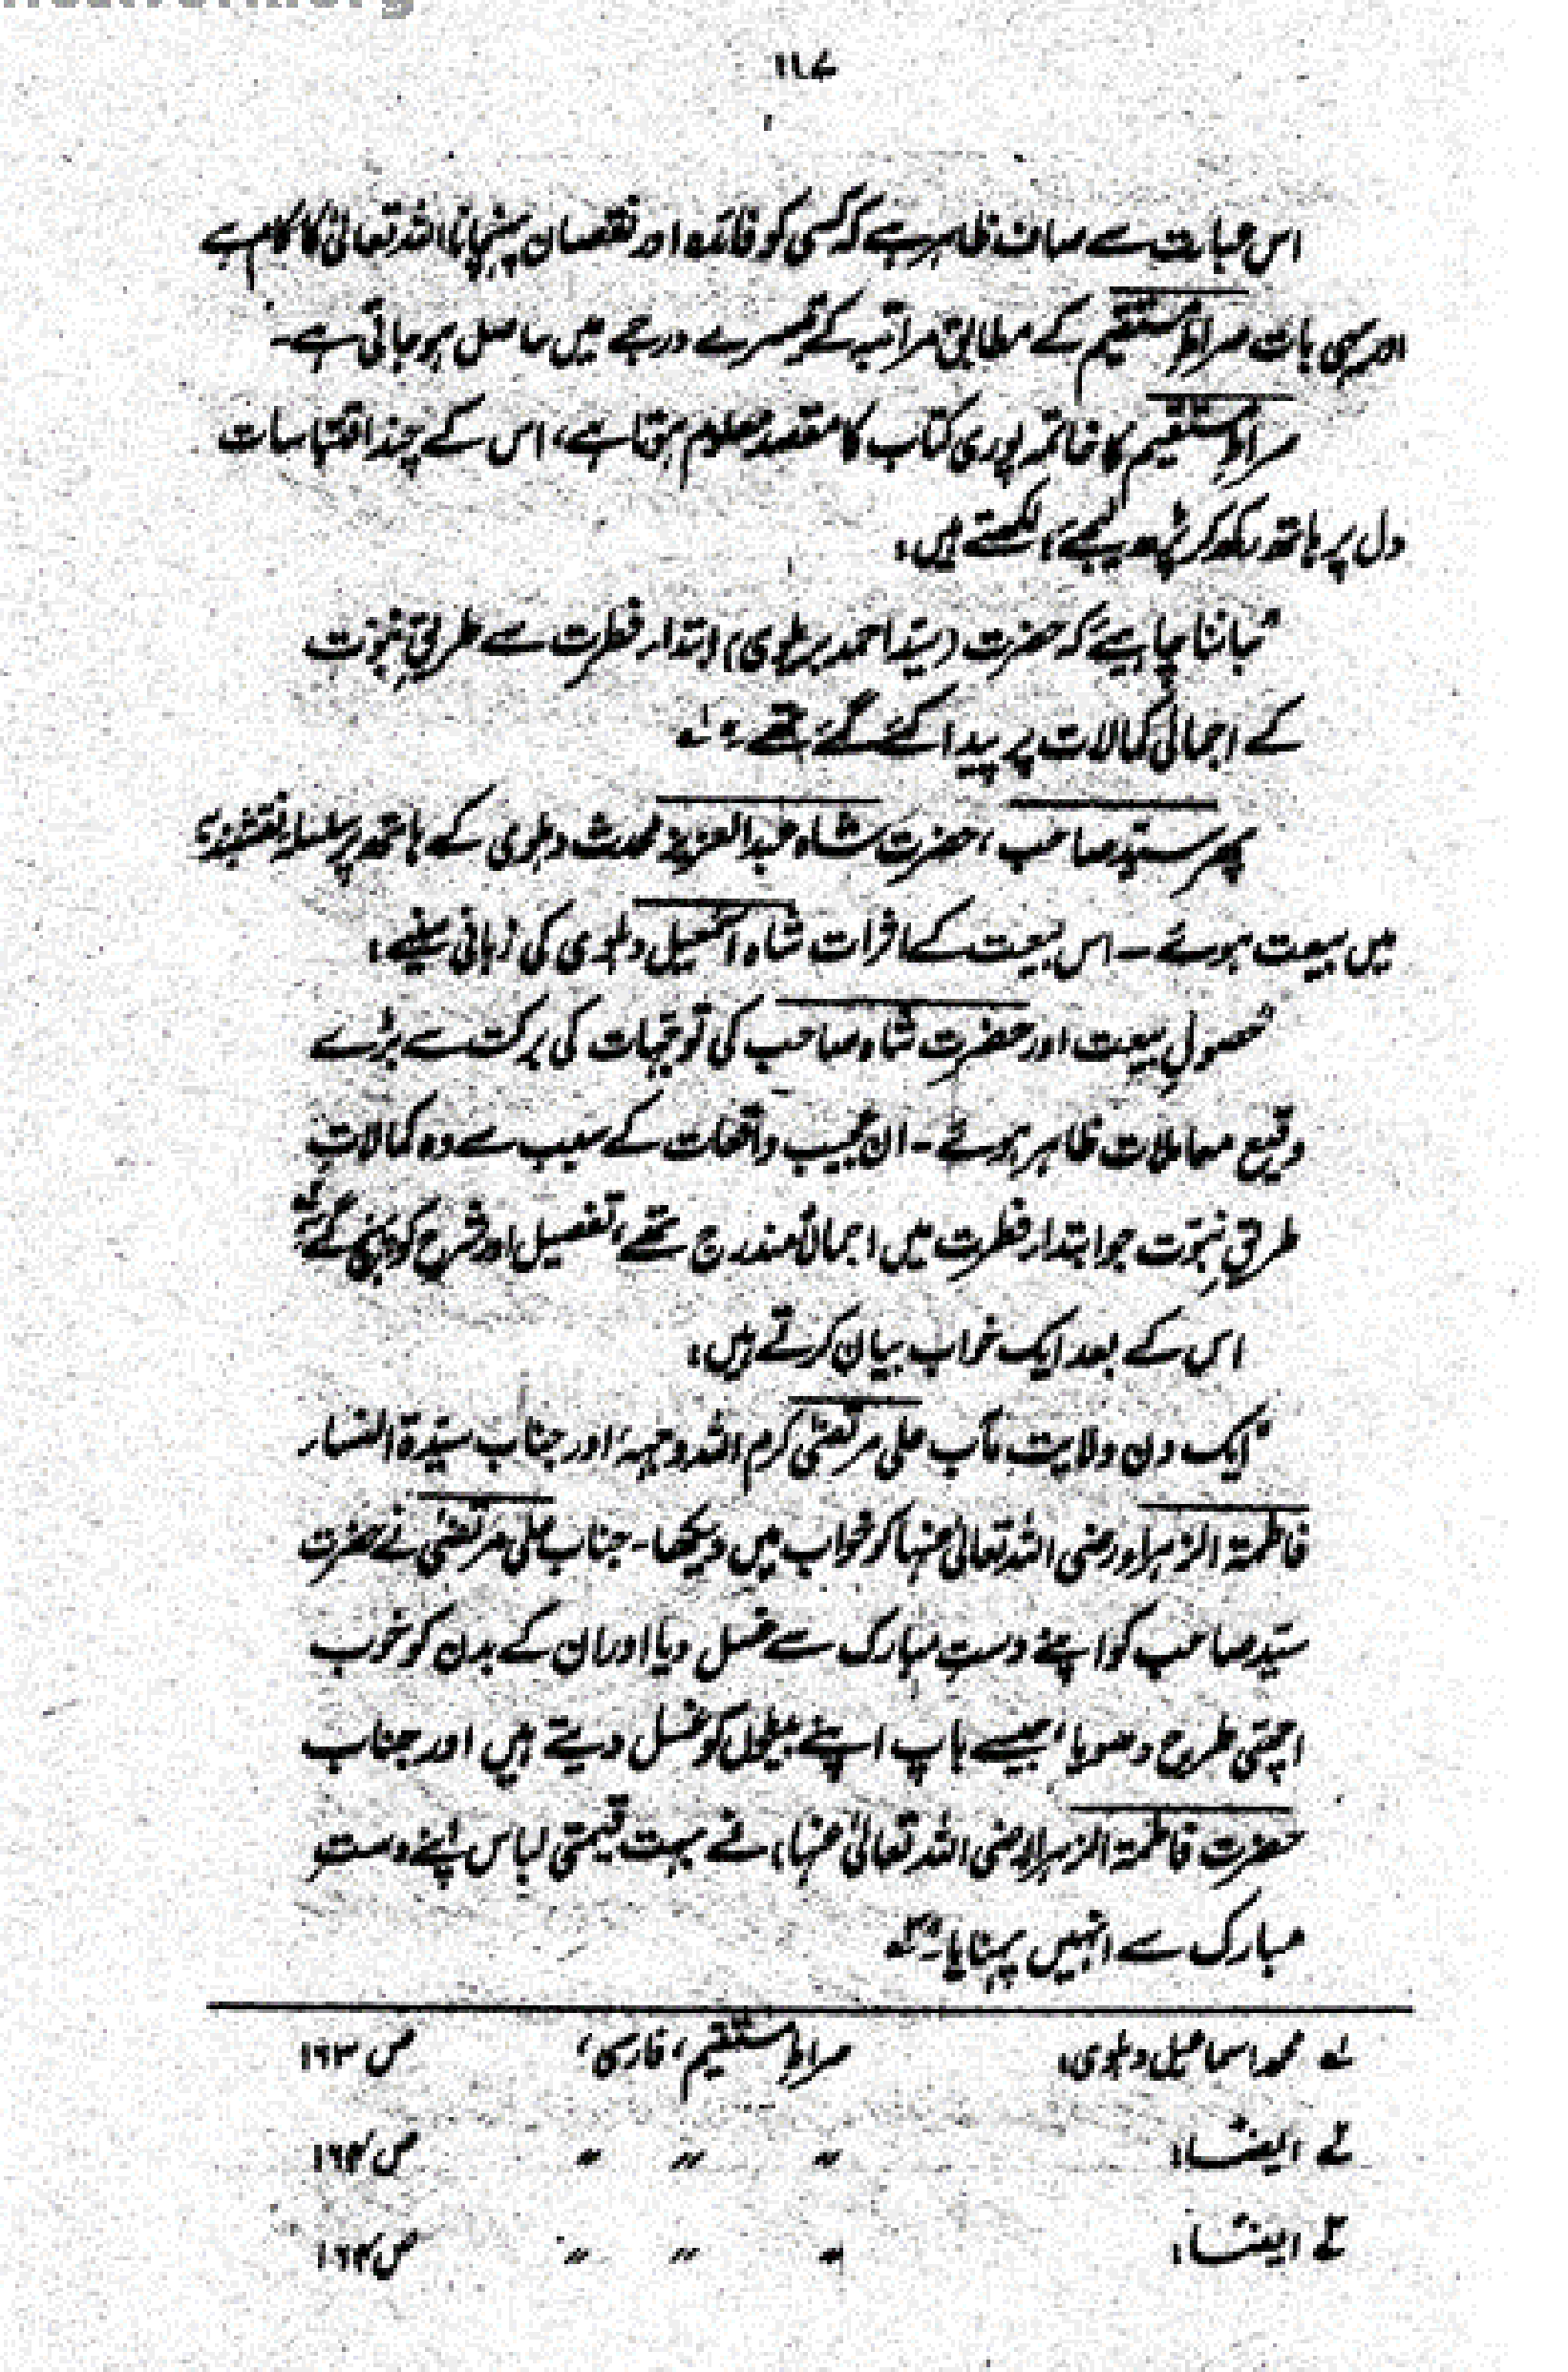 ۱۱۷
اس عبارت سے صاف ظاہر ہے کہ کسی کو فائدہ اور نقصان پہنچانا اللہ تعالیٰ کا کام ہے
اور یہی بات صراطِ مستقیم کے مطابق مراقبہ کے تیسرے درجے میں حاصل ہو جاتی ہے۔
صراطِ مستقیم کا خاتمہ پوری کتاب کا مقصد معلوم ہوتا ہے، اس کے چند اقتباسات
دل پر ہاتھ رکھ کر پڑھ لیجیے، لکھتے ہیں:
"جاننا چاہیے کہ حضرت (سید احمد بریلوی) ابتداءِ فطرت سے طریقِ نبوّت
کے اجمالی کمالات پر پیدا کئے گئے تھے۔" لہ
پھر سیّد صاحب، حضرت شاہ عبدالعزیز محدث دہلوی کے ہاتھ پر سلسلہ نقشبندیہ
میں بیعت ہوئے۔ اس بیعت کے اثرات شاہ اسمٰعیل دہلوی کی زبانی سنیے:
"حصولِ بیعت اور حضرت شاہ صاحب کی توجّہات کی برکت سے بڑے
وقیع معاملات ظاہر ہوئے۔ ان عجیب واقعات کے سبب سے وہ کمالاتِ
طریقِ نبوّت جو ابتداءِ فطرت میں اجمالاً مندرج تھے، تفصیل اور شرح کو پہنچ گئے"
اس کے بعد ایک خواب بیان کرتے ہیں:
"ایک دن ولایت مآب علی مرتضیٰ کرم اللہ وجہہٗ اور جناب سیّدۃ النساء
فاطمۃ الزہراء رضی اللہ تعالیٰ عنہا کو خواب میں دیکھا۔ جناب علی مرتضیٰ نے حضرت
سیّد صاحب کو اپنے دستِ مبارک سے غسل دیا اور ان کے بدن کو خوب
اچھی طرح دھویا، جیسے باپ اپنے بیٹوں کو غسل دیتے ہیں اور جناب
حضرت فاطمۃ الزہراء (رضی اللہ تعالیٰ عنہا) نے بہت قیمتی لباس اپنے دستِ
مبارک سے انہیں پہنایا۔" ۳ہ
لہ محمد اسماعیل دہلوی: صراطِ مستقیم، فارسی، ص ۱۶۳
۲ہ ایضاً: " " " ص ۱۶۴
۳ہ ایضاً: " " " ص ۱۶۴